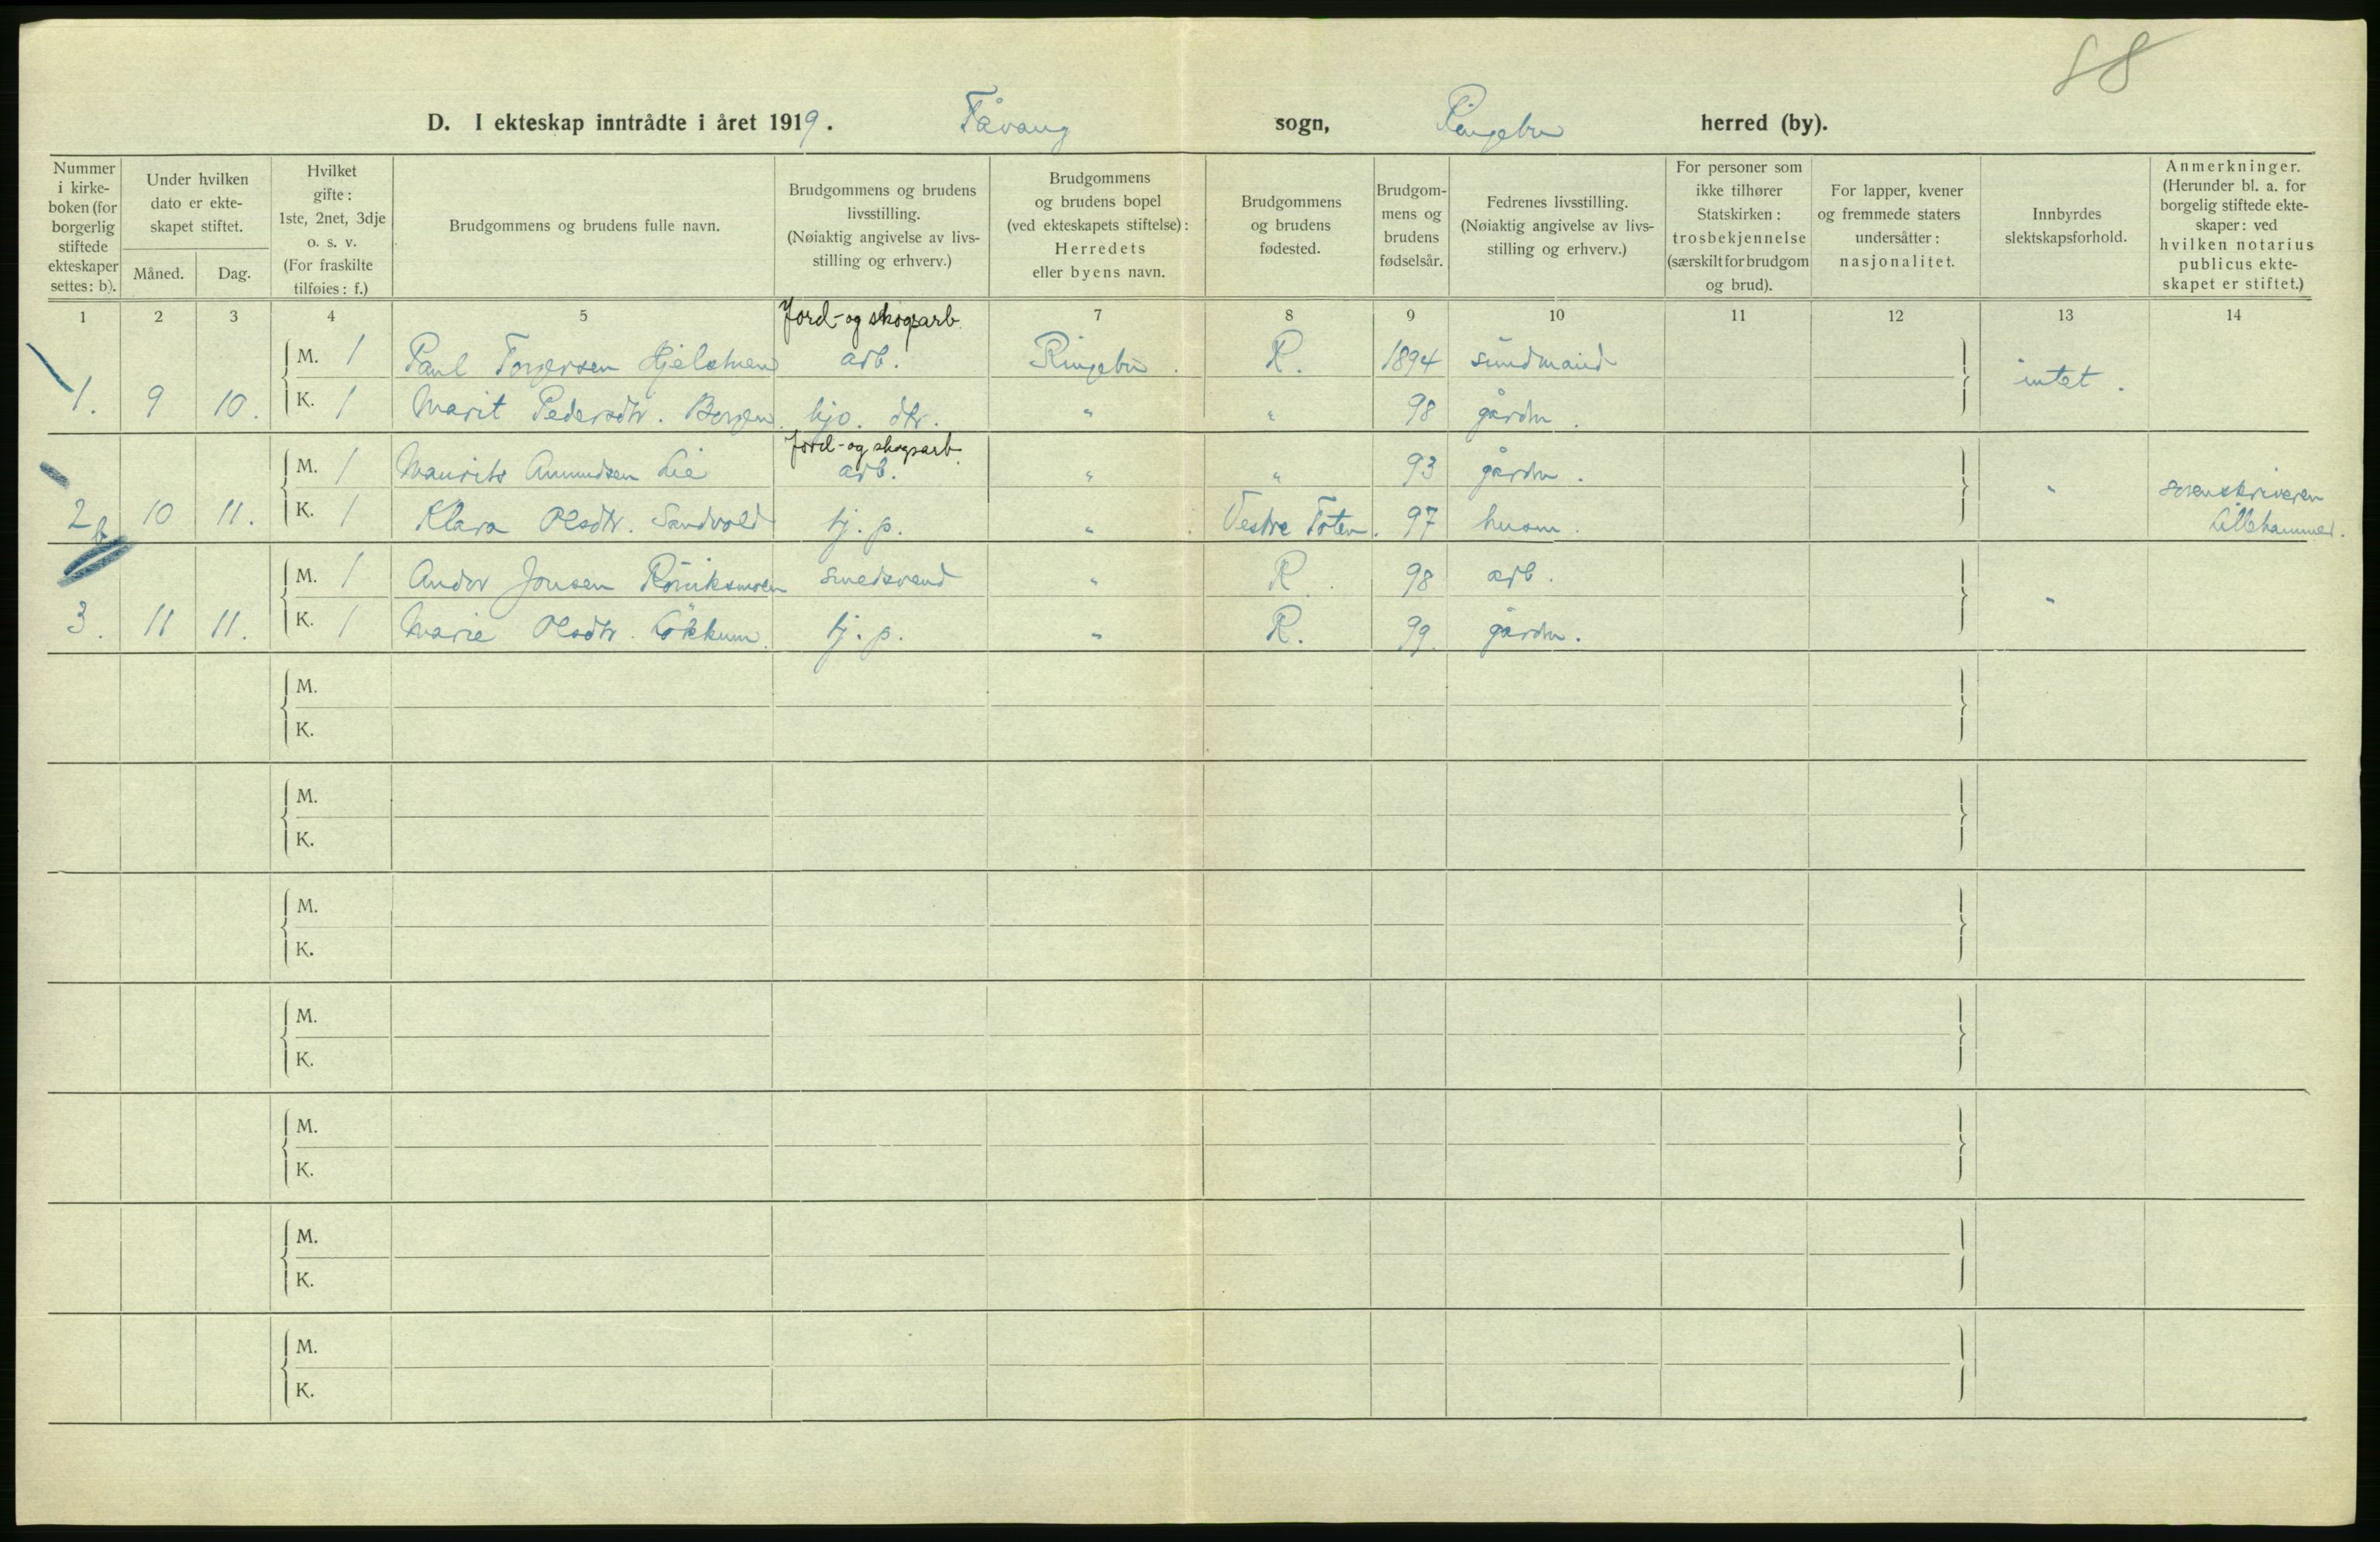 88
D. I ekteskap inntrådte i året 1919. Fåvang sogn, Ringebu herred (by).
Nummer i kirke-boken (for borgerlig stiftede ekteskaper settes: b).
Under hvilken dato er ekte-skapet stiftet.
Måned. Dag.
Hvilket gifte: 1ste, 2net, 3dje o. s. v. (For fraskilte tilføies: f.)
Brudgommens og brudens fulle navn.
Brudgommens og brudens livsstilling. (Nøiaktig angivelse av livs-stilling og erhverv.)
Brudgommens og brudens bopel (ved ekteskapets stiftelse): Herredets eller byens navn.
Brudgommens og brudens fødested.
Brudgom-mens og brudens fødselsår.
Fedrenes livsstilling. (Nøiaktig angivelse av livs-stilling og erhverv.)
For personer som ikke tilhører Statskirken: trosbekjennelse (særskilt for brudgom og brud).
For lapper, kvener og fremmede staters undersåtter: nasjonalitet.
Innbyrdes slektskapsforhold.
Anmerkninger. (Herunder bl. a. for borgelig stiftede ekte-skaper: ved hvilken notarius publicus ekte-skapet er stiftet.)
1 2 3 4 5 6 7 8 9 10 11 12 13 14
Jord- og skogsarb.
M. 1 Paul Torgersen Hjelstuen arb. Ringebu. R. 1894
1. 9 10. K. 1 Marit Pedersdtr. Borgen. hjv. dtr. " " 98 gårdbr. intet.
Jord- og skogsarb.
M. 1 Maurits Amundsen Lie arb. " " 93 gårdbr.
2 b 10 11. K. 1 Klara Olsdtr. Sandvold tj. p. " Vestre Toten. 97 husm. " sorenskriveren Lillehammer.
M. 1 Andor Jonsen smedsvend " R. 98 arb.
3. 11 11. K. 1 Marie Olsdtr. Løkkum. tj. p. " R. 99. gårdbr. "
M.
K.
M.
K.
M.
K.
M.
K.
M.
K.
M.
K.
M.
K.